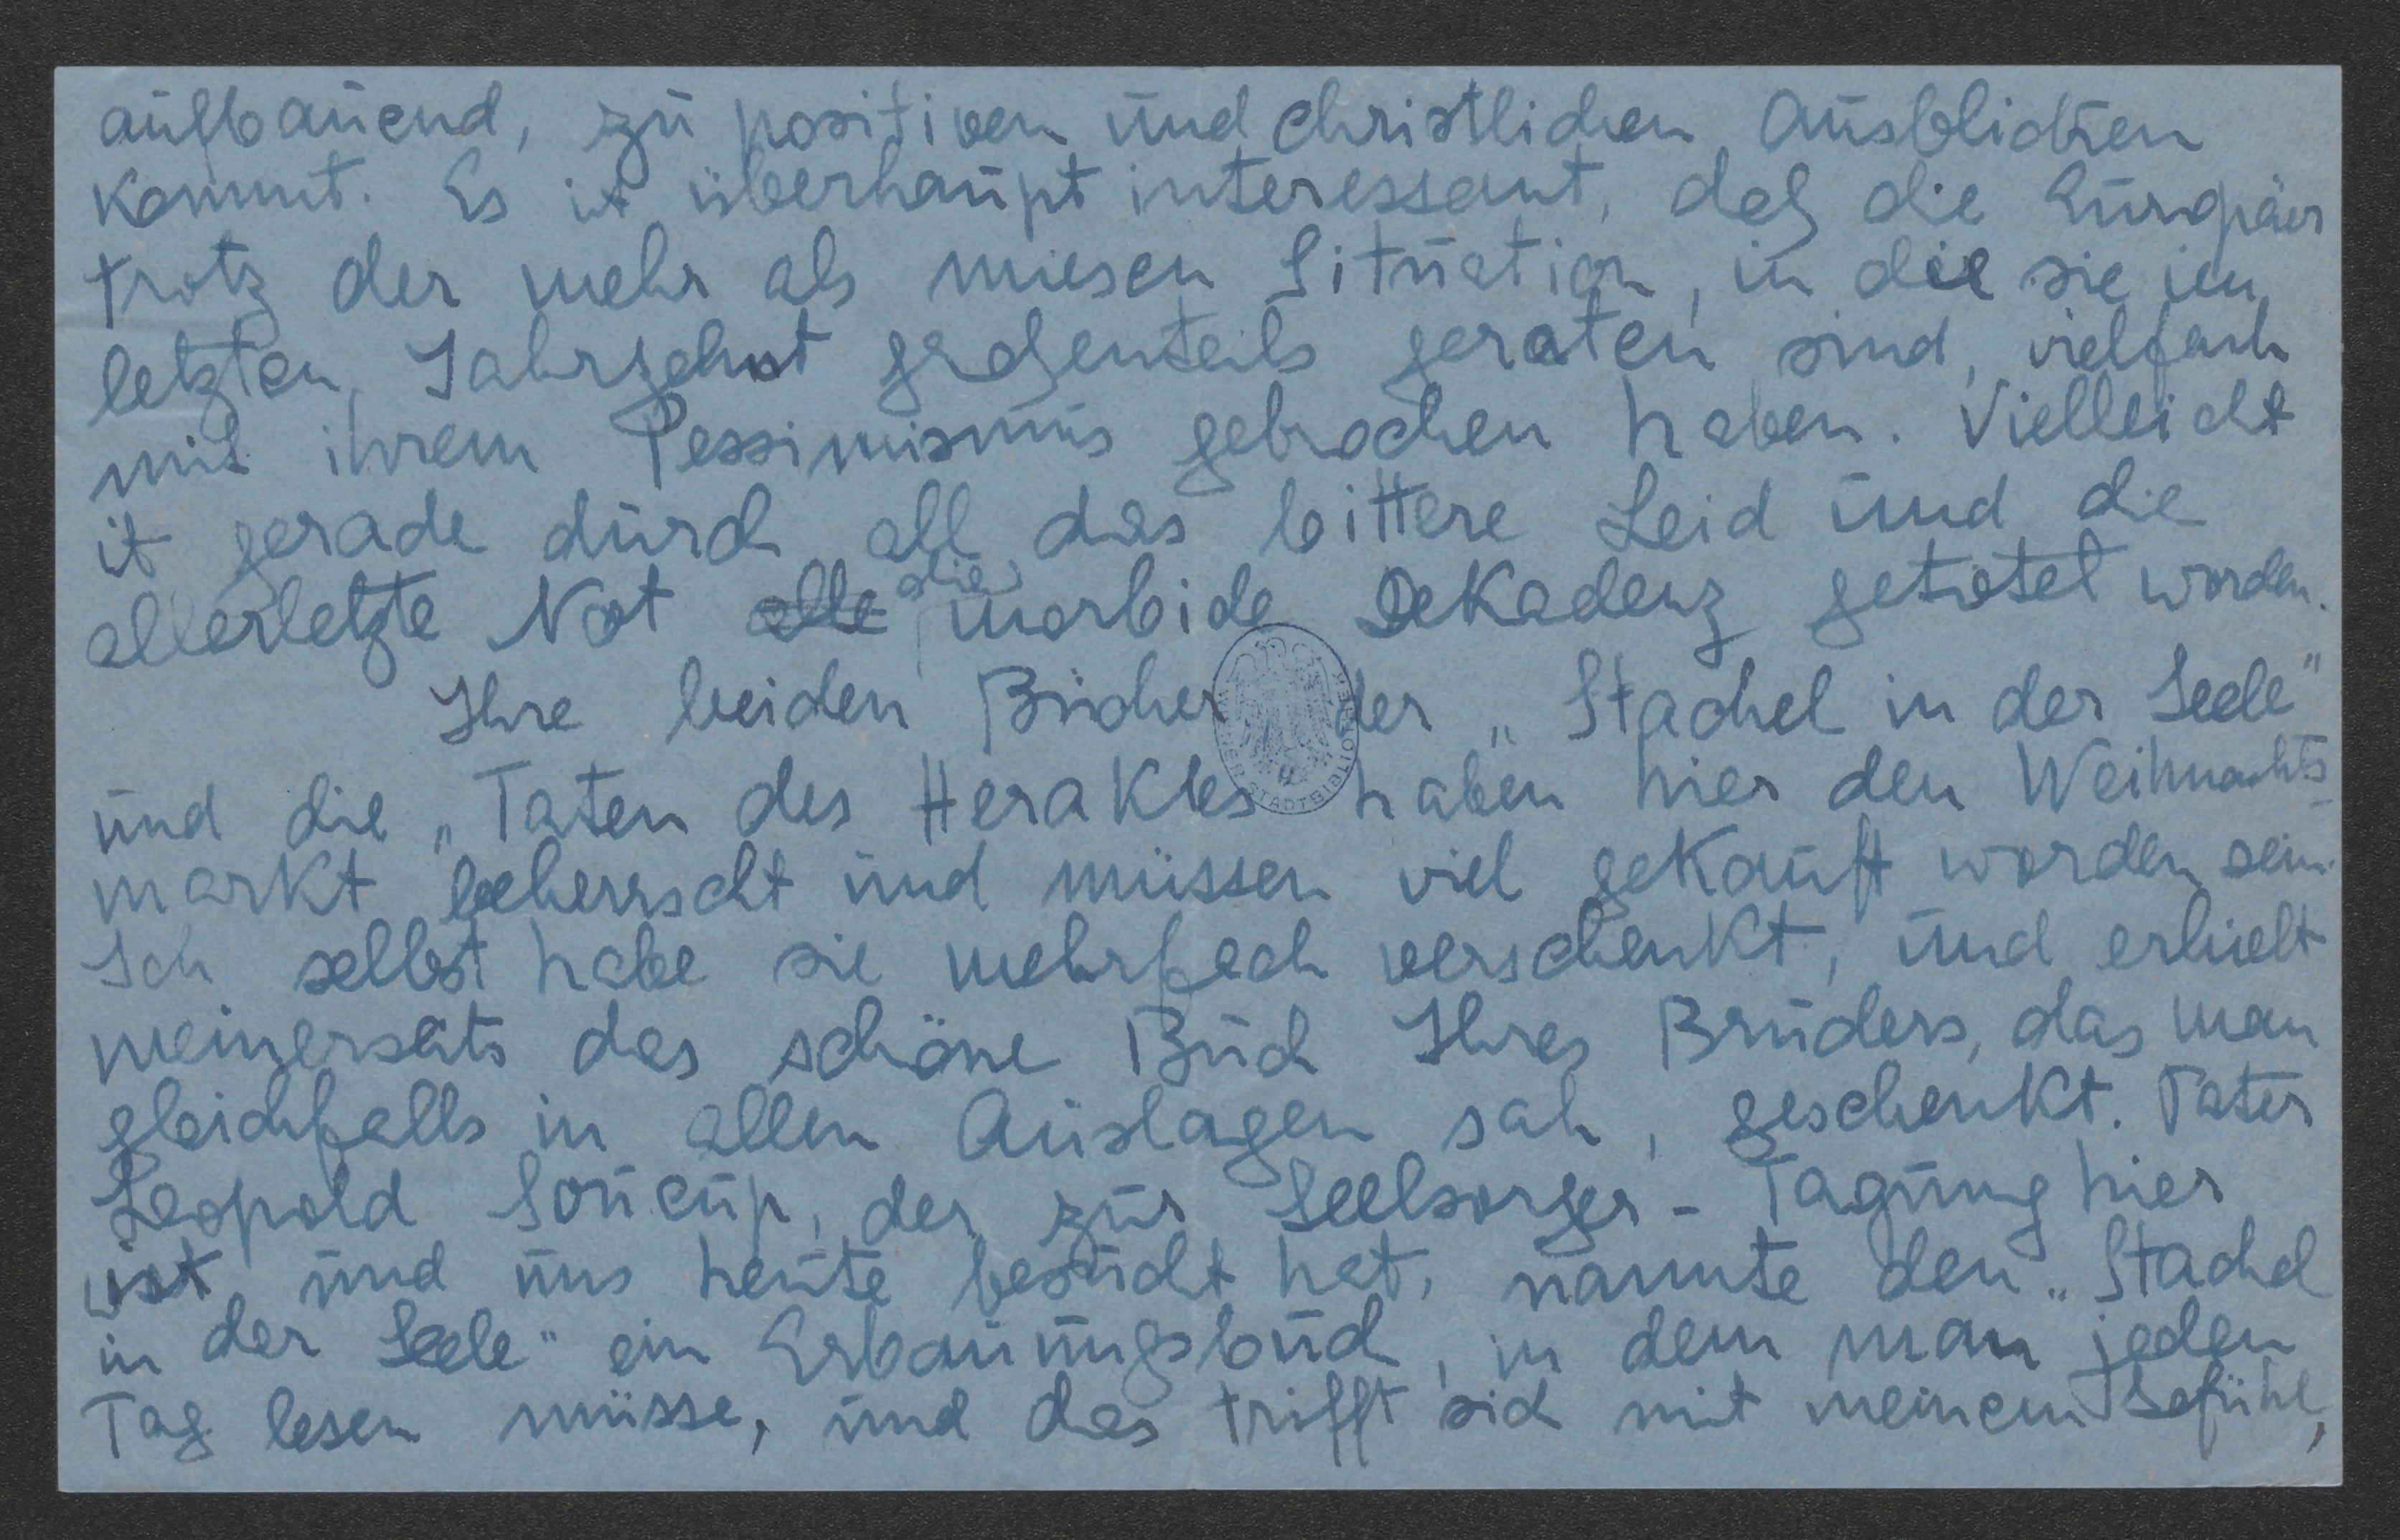 aufbauend, zu positiven und christlichen Ausblicken
kommt. Es ist überhaupt interessant, daß die Europäer
trotz der mehr als miesen Situation, in die sie im
letzten Jahrzehnt großenteils geraten sind, vielfach
mit ihrem Pessimismus gebrochen haben. Vielleicht
ist gerade durch all das bittere Leid und die
allerletzte Not alle die morbide Dekadenz getötet worden.
Ihre beiden Bücher der „Stachel in der Seele"
und die „Taten des Herakles haben hier den Weihnachts-
markt beherrscht und müssen viel gekauft worden sein.
Ich selbst habe sie mehrfach verschenkt, und erhielt
meinerseits das schöne Buch Ihres Bruders, das man
gleichfalls in allen Auslagen sah, geschenkt. Pater
Leopold Soucup, der zur Seelsorger-Tagung hier
ist und uns heute besucht hat, nannte den „Stachel
in der Seele" ein Erbauungsbuch, in dem man jeden
Tag lesen müsse, und das trifft sich mit meinem Gefühl,
WIENER STADTBIBLIOTHEK